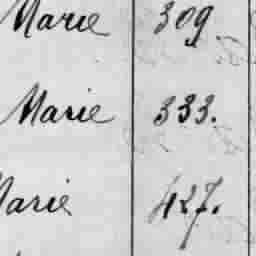 Marie 309
Marie 333.
Marie 427.